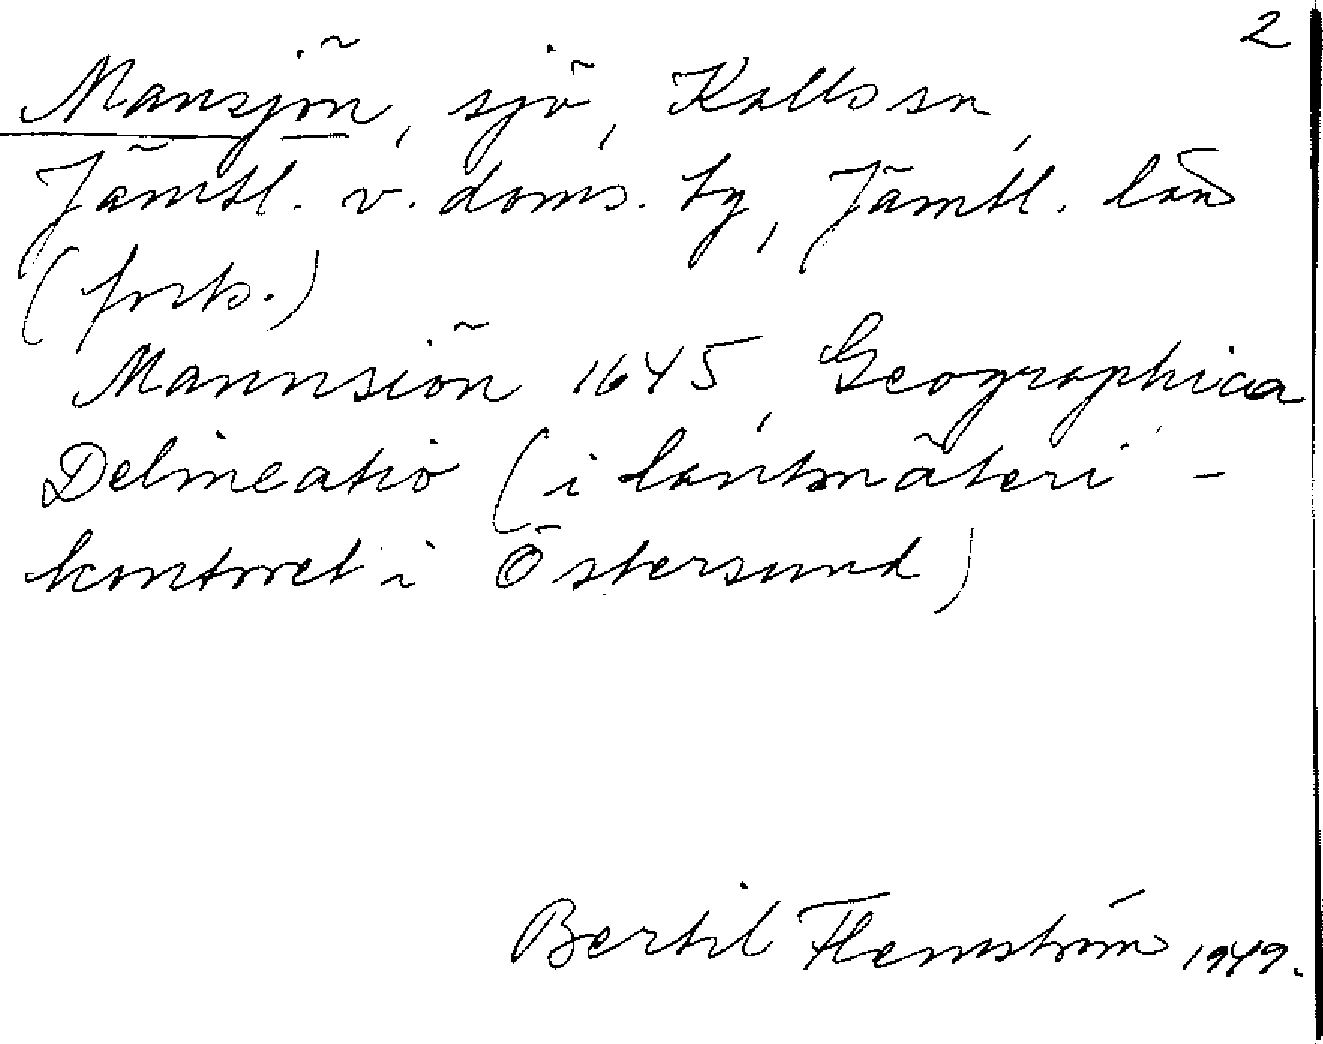 2
Mansjön, sjö, Kalls sn,
Jämtl. v. doms. tg, Jämtl. län
(forts.)
Mannsiön 1645, Geographica
Delineatio (i lantmäteri-
kontoret i Östersund)
Bertil Flemström 1949.